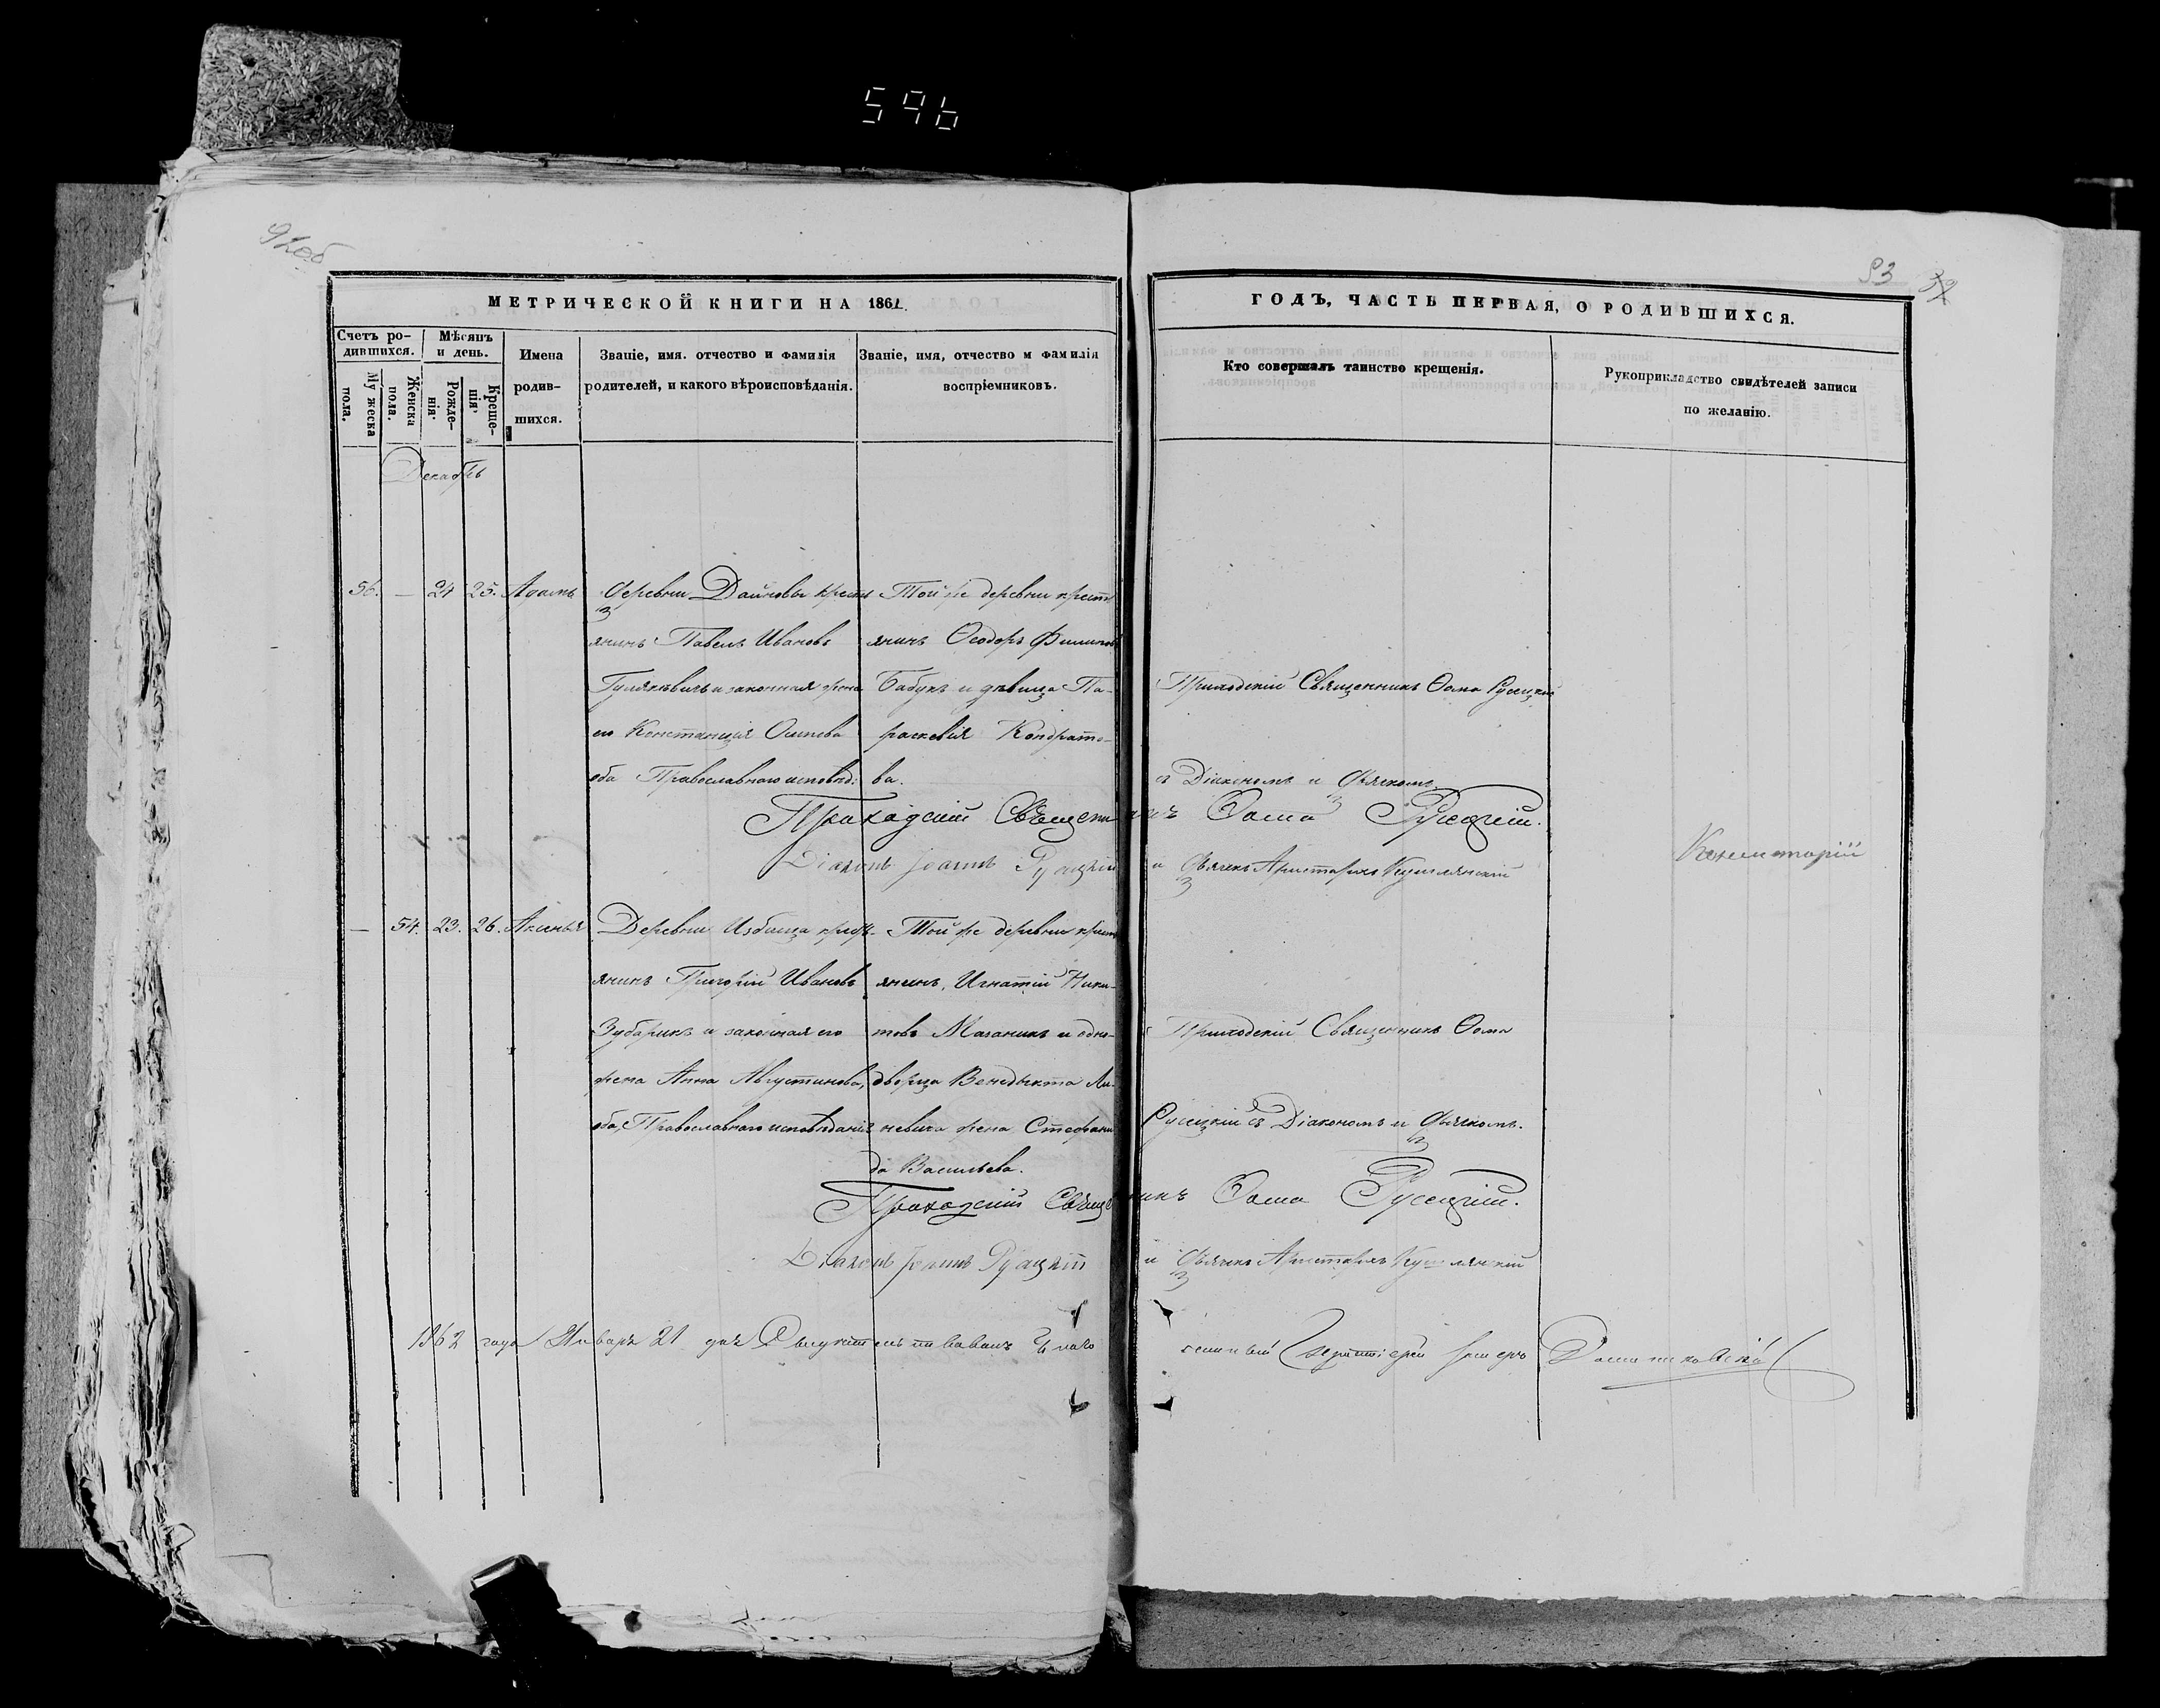 596
92об
93
МЕТРИЧЕСКОЙ КНИГИ НА 1861.
ГОДЪ, ЧАСТЬ ПЕРВАЯ, О РОДИВШИХСЯ.
Счетъ ро-
дившихся.
Мужеска
пола.
Женска
пола.
Мѣсяцъ
и день.
Рожде-
нія.
Креще-
нія.
Имена
родив-
шихся.
Званіе, имя. отчество и фамилія
родителей, и какого вѣроисповѣданія.
Званіе, имя, отчество и фамилія
воспріемниковъ.
Кто совершалъ таинство крещенія.
Рукоприкладство свидѣтелей записи
по желанію.
Декабрь
56. — 24 25. Адамъ
деревни Дайновы крест
янинъ Павелъ Ивановъ
и законная жена
его Констанція Осипова
оба Православнаго исповѣд:
Той же деревни крест
янинъ Ѳеодоръ Филиповъ
Бабукъ и дѣвица Па-
раскевія Кондрато-
ва.
Приходскій Священникъ Ѳома Русецкій
съ Діакономъ и Дьячкомъ.
Приходскій Священникъ Ѳома Русецкій.
Діаконъ Іоаннъ и Дьячекъ Аристархъ
Консисторій
— 54. 23. 26. Аксинья
Деревни Избища крест-
янинъ Григорій Ивановъ
Зубрикъ и законная его
жена Анна Августинова,
оба Православнаго исповѣданія
Той же деревни крест
янинъ, Игнатій Ники-
товъ Мазаникъ и одно-
дворца Венедыкта Ли-
невича жена Стефани
да Васильева.
Приходскій Священникъ Ѳома
Русецкій съ Діакономъ и Дьячкомъ.
Приходскій Священникъ Ѳома Русецкій.
Діаконъ Іоаннъ и Дьячекъ Аристархъ
1862 года Январь 21 дня Свидѣтельствовалъ